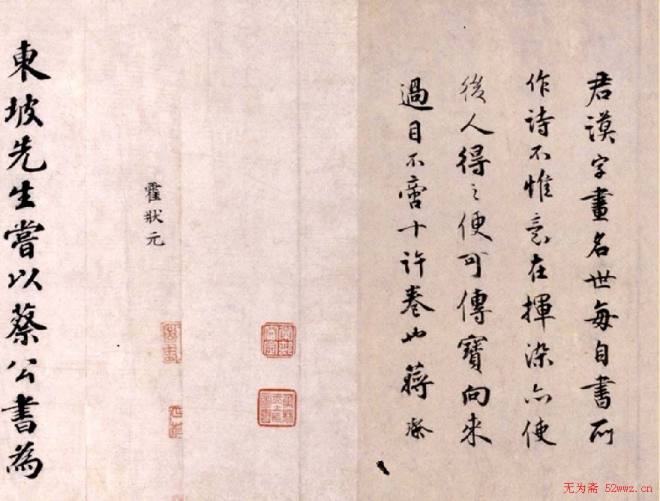 君謨字畫名世每自書所
作詩不惟意在揮染亦使
後人得之便可傳寶向來
過目不啻十許卷也蔣璨
霍狀元
東坡先生嘗以蔡公書為
无为斋 52wwz.cn